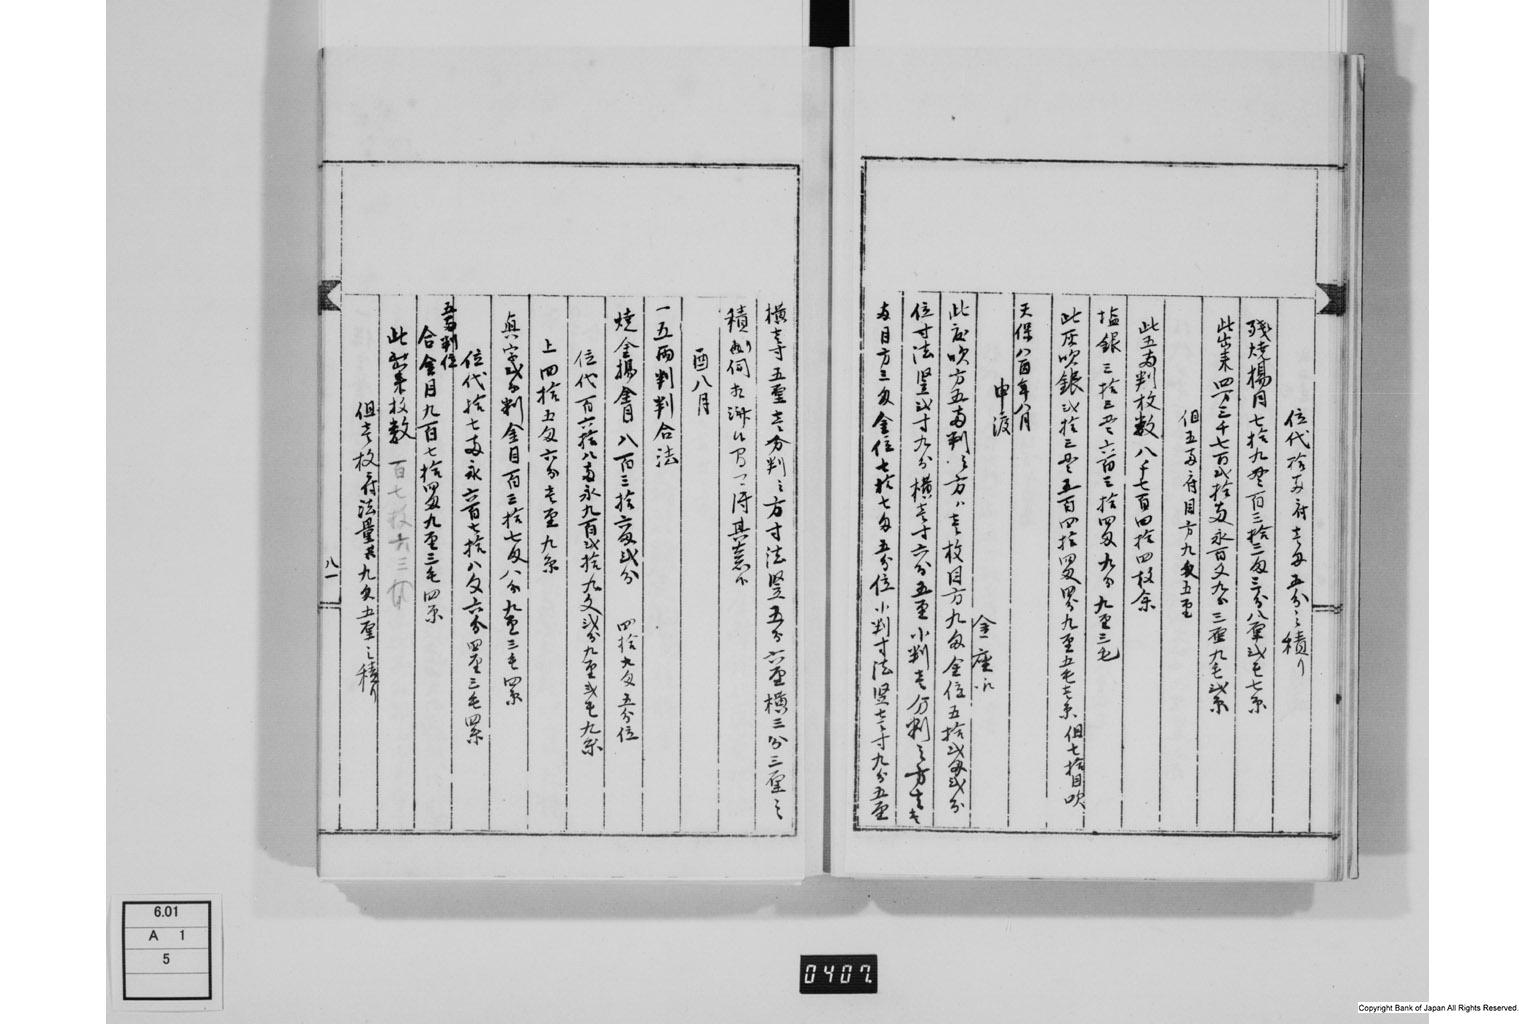 位代拾両ニ付壱匁五分之積り
残焼揚目七拾九貫百三拾二匁三分八厘弐毛七糸
此出来四万三千七百弐拾両永百文九分三厘九毛弐糸
但五両ニ付目方九匁五厘
此五両判枚数八千七百四拾四枚余
塩銀三拾三貫六百三拾四匁九分九厘三毛
此灰吹銀弐拾三貫五百四拾四匁四分九厘五毛壱糸但七拾目吹
天保八酉年八月
申渡
金座江
此度吹方五両判之方ハ壱枚目方九匁金位五拾弐匁弐分
位寸法竪弐寸九分横壱寸六分五厘小判壱分判之方壱
両目方三匁金位七拾七匁五分位小判寸法竪壱寸九分五厘
横壱寸五厘壱分判之方寸法竪五分六厘横三分三厘之
積
酉八月
一五両判判合法
焼金揚金目八百三拾六匁弐分 四拾九匁五分位
位代百六拾八両永九百弐拾九文弐分九厘弐毛九糸
上四拾五匁六分壱厘九糸
真字弐分判金目百三拾七匁八分九厘三毛四糸
位代拾七両永六百七拾八文六分四厘三毛四糸
五両判位
合金目九百七拾四匁九厘三毛四糸
此出来枚数 百七枚六三
但壱枚ニ付法量目九匁五厘之積り
八一
6.01
A 1
5
0407.
Copyright Bank of Japan All Rights Reserved.